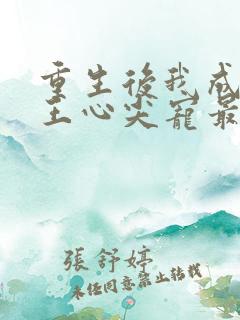 重生後我成
王心尖寵最
張舒婷
未经同意禁止转载